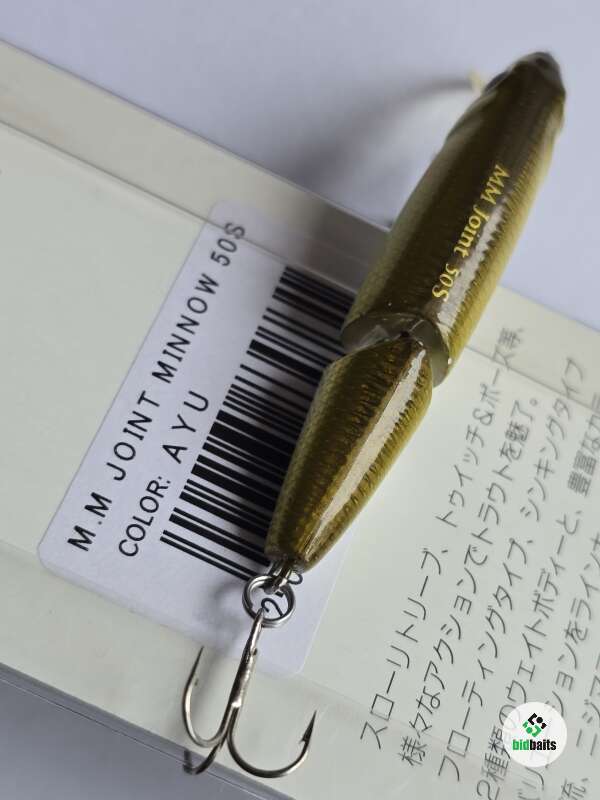 M.M JOINT MINNOW 50S
COLOR: AYU
MM Joint 50S
スローリトリーブ、トゥイッチ&ポーズ等、
様々なアクションでトラウトを魅了。
フローティングタイプ、シンキングタイプ
2種類のウェイトボディーと、豊富なカラ
ションをラインナ
bidbaits